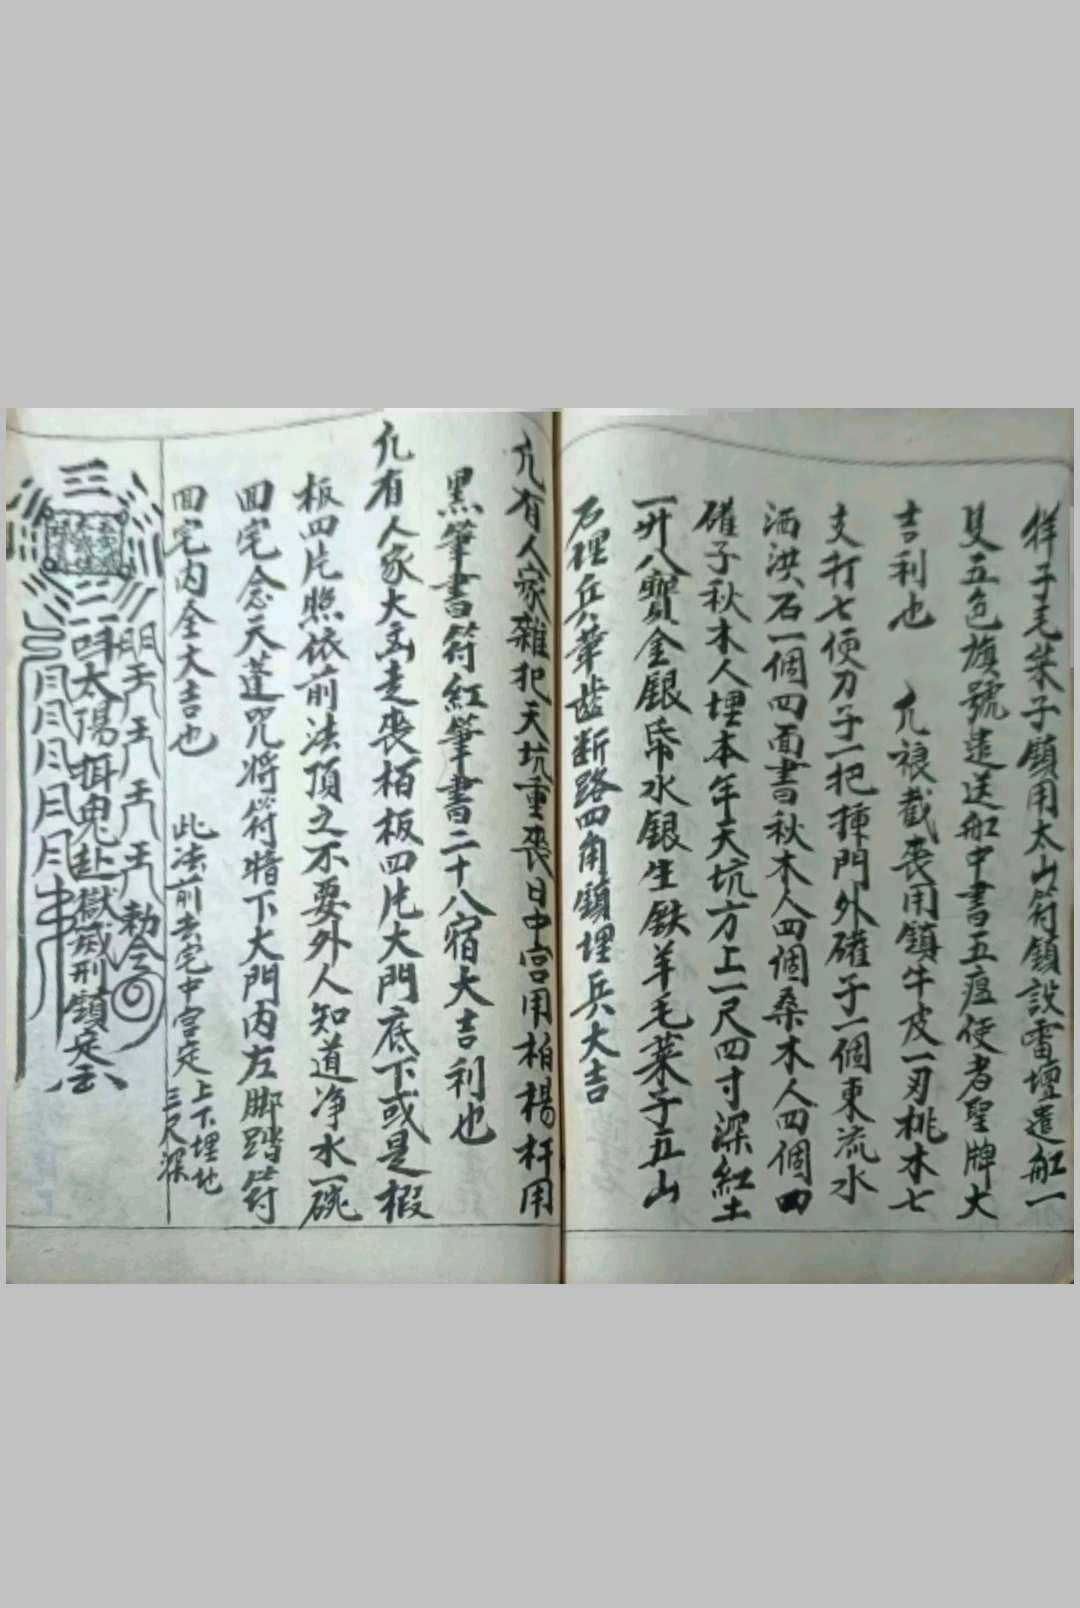 样子毛菜子鎮用太山符鎮設雷壇遣舡一
隻五色旗號遣送舡中書五瘟使者聖牌大
吉利也　凢禳截丧用鎮牛皮一刃桃木七
支打七便刀子一把捶門外確子一個東流水
洒洪石一個四面書秋木人四個桑木人四個四
確子秋木人埋本年天坑方上一尺四寸深紅土
一升八寶金銀帛水銀生鉄羊毛菜子五山
石埋兵華齒断路四角鎮埋兵大吉
凢有人家雜犯天坑重丧日中宫用柏楊杆用
黑筆書符紅筆書二十八宿大吉利也
凢有人家大凶走丧栢板四片大門底下或是椵
板四片照依前法頂之不要外人知道净水一碗
回宅念天蓬咒将符暗下大門内左脚踏符
回宅内全大吉也　此法前去宅中宫定上下埋地
三尺深
明
勅令
太陽揖鬼赴獄滅刑鎮定